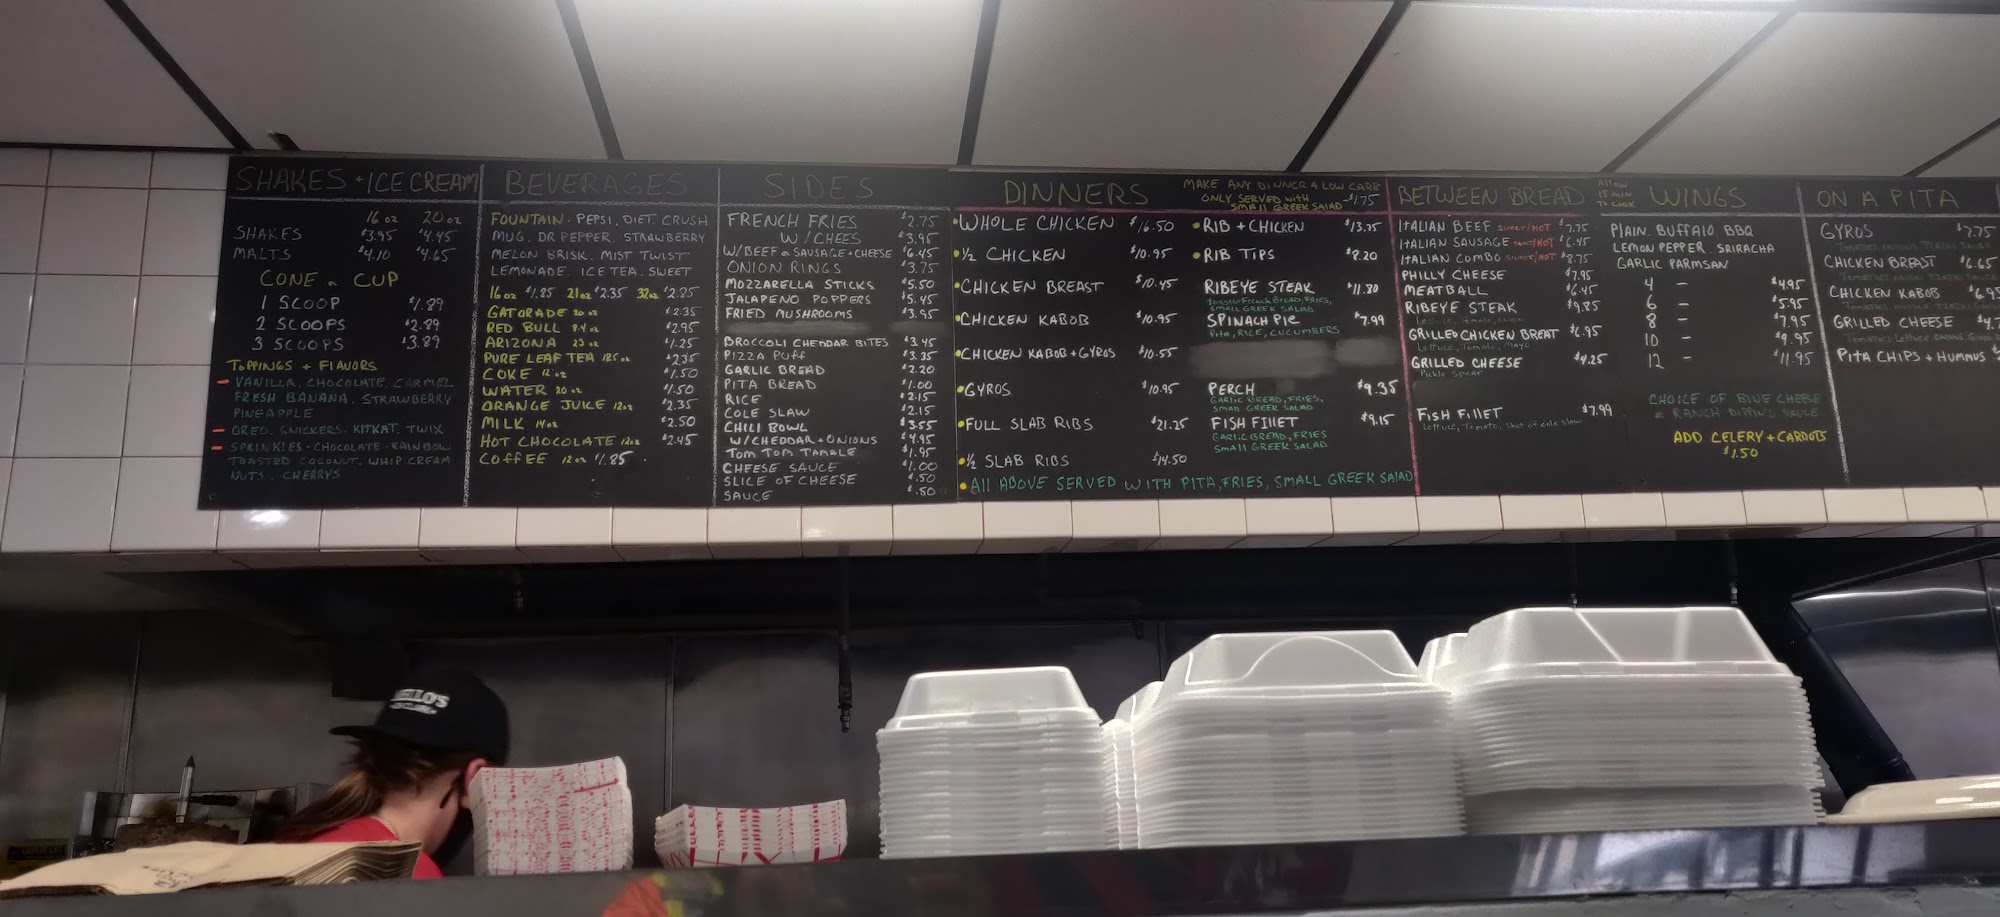 SHAKES + ICE CREAM
16 oz 20 oz
SHAKES $3.95 $4.45
MALTS $4.10 $4.65
CONE or CUP
1 SCOOP $1.89
2 SCOOPS $2.89
3 SCOOPS $3.89
TOPPINGS + FLAVORS
- VANILLA. CHOCOLATE. CARMEL
FRESH BANANA. STRAWBERRY
PINEAPPLE
- OREO. SNICKERS. KITKAT. TWIX
- SPRINKLES - CHOCOLATE - RAINBOW
TOASTED COCONUT. WHIP CREAM
NUTS. CHERRYS
BEVERAGES
FOUNTAIN: PEPSI. DIET. CRUSH
MUG. DR PEPPER. STRAWBERRY
MELON BRISK. MIST TWIST
LEMONADE. ICE TEA. SWEET
16oz $1.85 21oz $2.35 32oz $2.85
GATORADE 20 oz $2.35
RED BULL 8.4 oz $2.95
ARIZONA 23 oz $1.25
PURE LEAF TEA 18.5 oz $2.35
COKE 12 oz $1.50
WATER 20 oz $1.50
ORANGE JUICE 12oz $2.35
MILK 14oz $2.50
HOT CHOCOLATE 12oz $2.45
COFFEE 12oz $1.85
SIDES
FRENCH FRIES $2.75
W/CHEES $3.95
W/BEEF or SAUSAGE + CHEESE $6.45
ONION RINGS $3.75
MOZZARELLA STICKS $5.50
JALAPENO POPPERS $5.45
FRIED MUSHROOMS $3.95
BROCCOLI CHEDDAR BITES $3.45
PIZZA PUFF $3.35
GARLIC BREAD $2.20
PITA BREAD $1.00
RICE $2.15
COLE SLAW $2.15
CHILI BOWL $3.55
W/CHEDDAR + ONIONS $4.95
TOM TOM TAMALE $1.95
CHEESE SAUCE $1.00
SLICE OF CHEESE $.50
SAUCE $.50
DINNERS
MAKE ANY DINNER A LOW CARB
ONLY SERVED with
SMALL GREEK SALAD -$1.75
• WHOLE CHICKEN $16.50
• ½ CHICKEN $10.95
• CHICKEN BREAST $10.45
• CHICKEN KABOB $10.95
• CHICKEN KABOB + GYROS $10.55
• GYROS $10.95
• FULL SLAB RIBS $21.25
• ½ SLAB RIBS $14.50
• RIB + CHICKEN $13.75
• RIB TIPS $8.20
RIBEYE STEAK $11.80
Toasted French Bread, FRIES,
SMALL GREEK SALAD
SPINACH PIE $7.99
Pita, RICE, CUCUMBERS
PERCH $9.35
GARLIC BREAD, FRIES,
Small GREEK SALAD
FISH FILLET $9.15
GARLIC BREAD, FRIES
Small GREEK SALAD
• All ABOVE SERVED WITH PITA, FRIES, SMALL GREEK SALAD
BETWEEN BREAD
ITALIAN BEEF SWEET/HOT $7.75
ITALIAN SAUSAGE SWEET/HOT $6.45
ITALIAN COMBO SWEET/HOT $8.75
PHILLY CHEESE $7.95
MEATBALL $6.45
RIBEYE STEAK $9.85
GRILLED CHICKEN BREAT $6.95
Lettuce, Tomato, Mayo
GRILLED CHEESE $4.25
Pickle Spear
FISH FILLET $7.99
Lettuce, Tomato, Shot of cole slaw
Allow
15 MIN
TO COOK
WINGS
PLAIN. BUFFALO BBQ
LEMON PEPPER SRIRACHA
GARLIC PARMSAN
4 - $4.95
6 - $5.95
8 - $7.95
10 - $9.95
12 - $11.95
CHOICE OF BLUE CHEESE
or RANCH DIPPING SAUCE
ADD CELERY + CARROTS
$1.50
ON A PITA
GYROS $7.75
CHICKEN BREAST $6.65
CHICKEN KABOB $6.95
GRILLED CHEESE
PITA CHIPS + HUMMUS